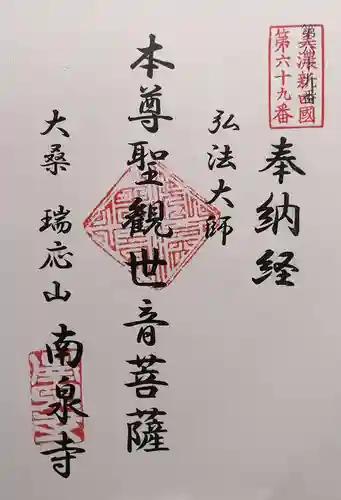 美濃新四國
第六十九番
奉納経
弘法大師
本尊聖観世音菩薩
大桑 瑞応山 南泉寺